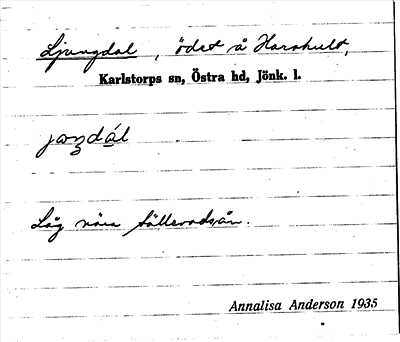 Ljungdal, ödet å Harshult,
Karlstorps sn, Östra hd, Jönk. l.
Låg nära Sällevadsån.
Annalisa Anderson 1935